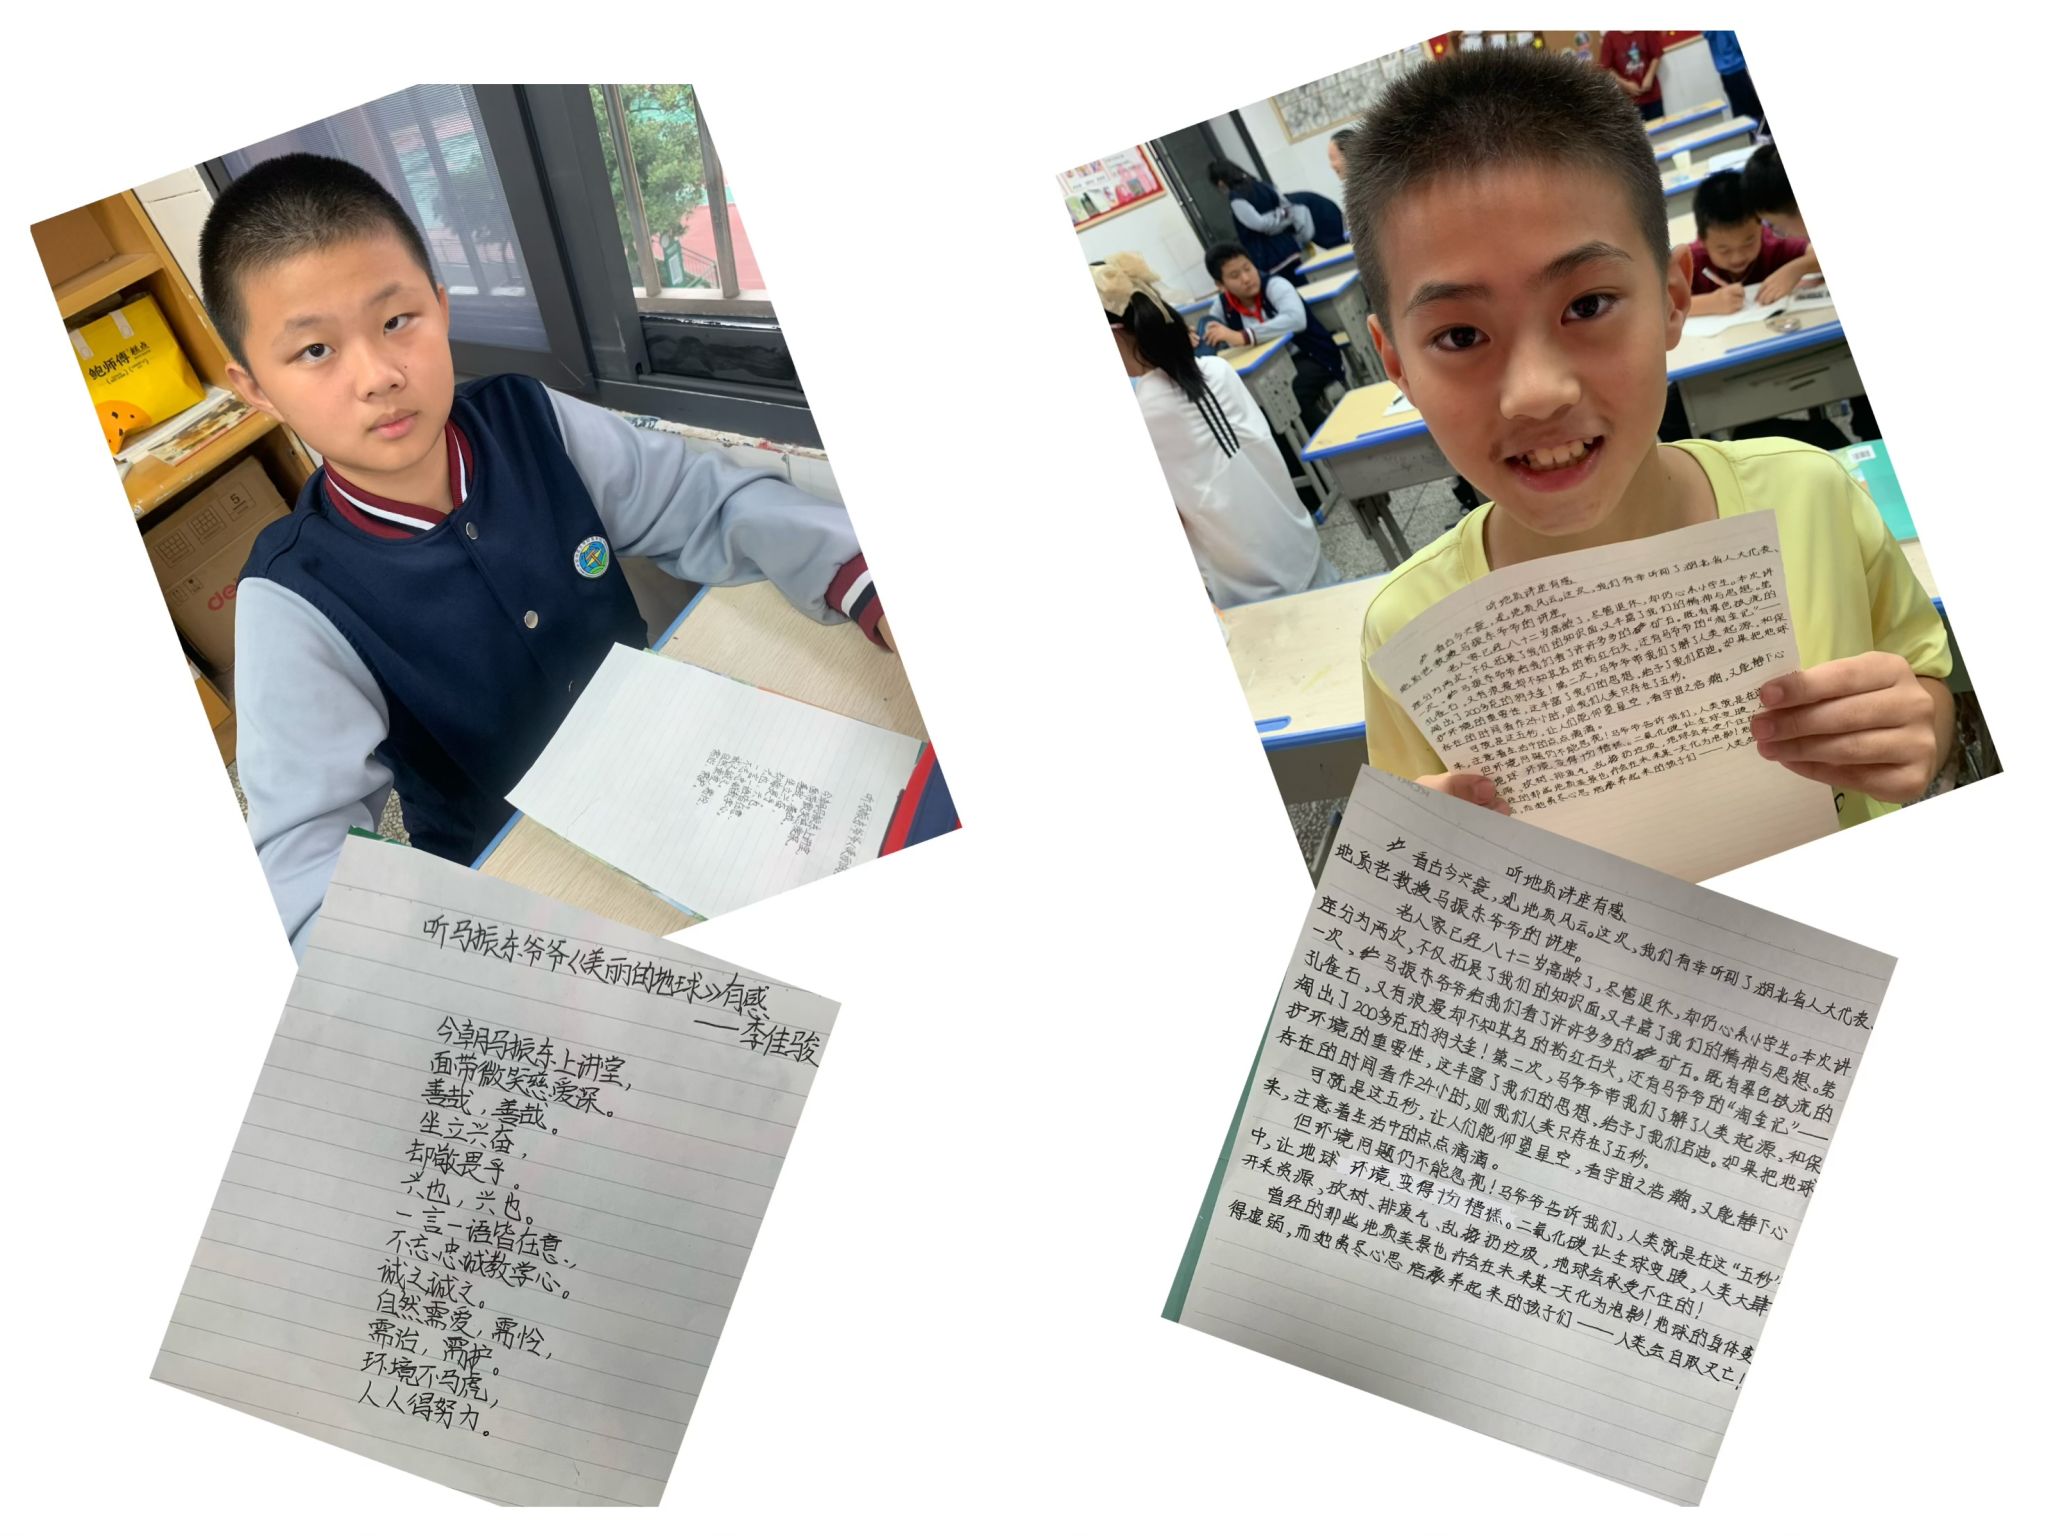 鲍师傅糕点
5
deli
听马振东爷爷《美丽的地球》有感
——李佳骏
今朝马振东上讲堂，
面带微笑慈爱深。
善哉，善哉。
坐立兴奋，
却敬畏乎。
兴也，兴也。
一言一语皆在意，
不忘忠诚教学心。
诚之诚之。
自然需爱，需怜，
需治，需护。
环境不马虎，
人人得努力。
听地质讲座有感
看古今兴衰，观地质风云。这次，我们有幸听到了湖北省人大代表、
地质老教授马振东爷爷的讲座。
老人家已经八十二岁高龄了，尽管退休，却仍心系小学生。本次讲
座分为两次，不仅拓展了我们的知识面，又丰富了我们的精神与思想。第
一次，马振东爷爷给我们看了许许多多的矿石。既有翠色欲流的
孔雀石，又有浪漫却不知其名的粉红石头，还有马爷爷的“淘金记”——
淘出了200多克的狗头金！第二次，马爷爷带我们了解了人类起源，和保
护环境的重要性，这丰富了我们的思想，给予了我们启迪。如果把地球
存在的时间看作24小时，则我们人类只存在了五秒。
可就是这五秒，让人们能仰望星空，看宇宙之浩瀚，又能静下心
来，注意着生活中的点点滴滴。
但环境问题仍不能忽视！马爷爷告诉我们，人类就是在这“五秒”
中，让地球环境变得十分糟糕。二氧化碳让全球变暖，人类大肆
开采资源，砍树、排废气、乱扔垃圾，地球会承受不住的！
曾经的那些地质美景也许会在未来某一天化为泡影！地球的身体变
得虚弱，而她费尽心思培养起来的孩子们——人类会自取灭亡！